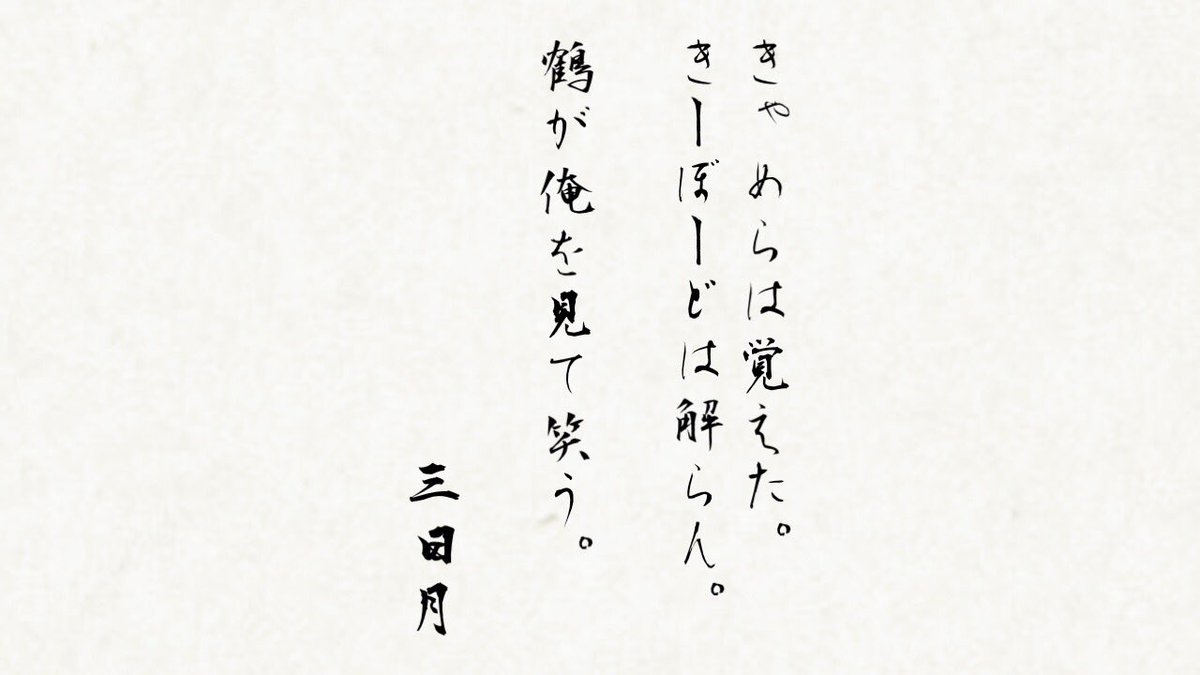 きゃめらは覚えた。
きーぼーどは解らん。
鶴が俺を見て笑う。
三日月